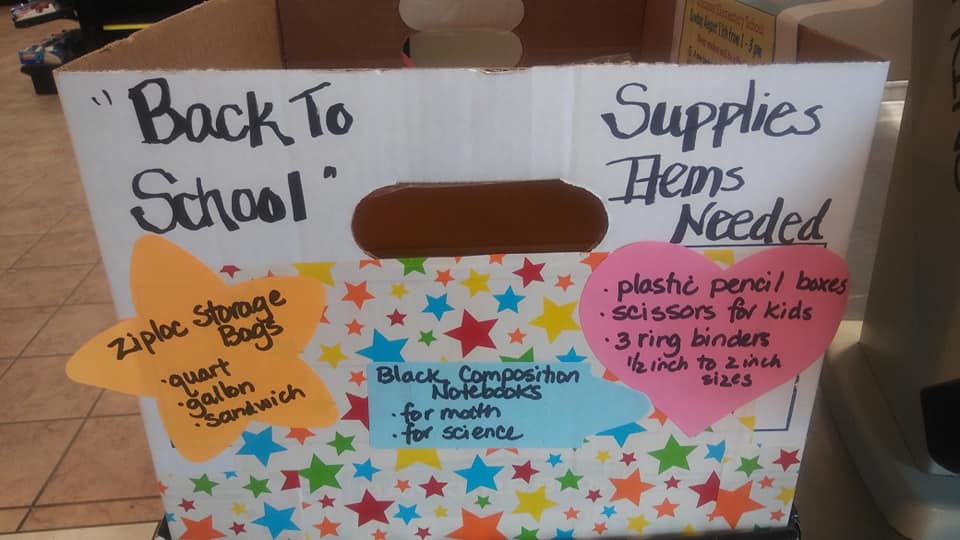 "Back To
School"
Supplies
Items
Needed
Ziploc Storage
Bags
· quart
· gallon
· sandwich
Black Composition
Notebooks
· for math
· for science
· plastic pencil boxes
· scissors for kids
· 3 ring binders
1/2 inch to 2 inch
sizes
Elementary School
Sunday August 13th from 1 -